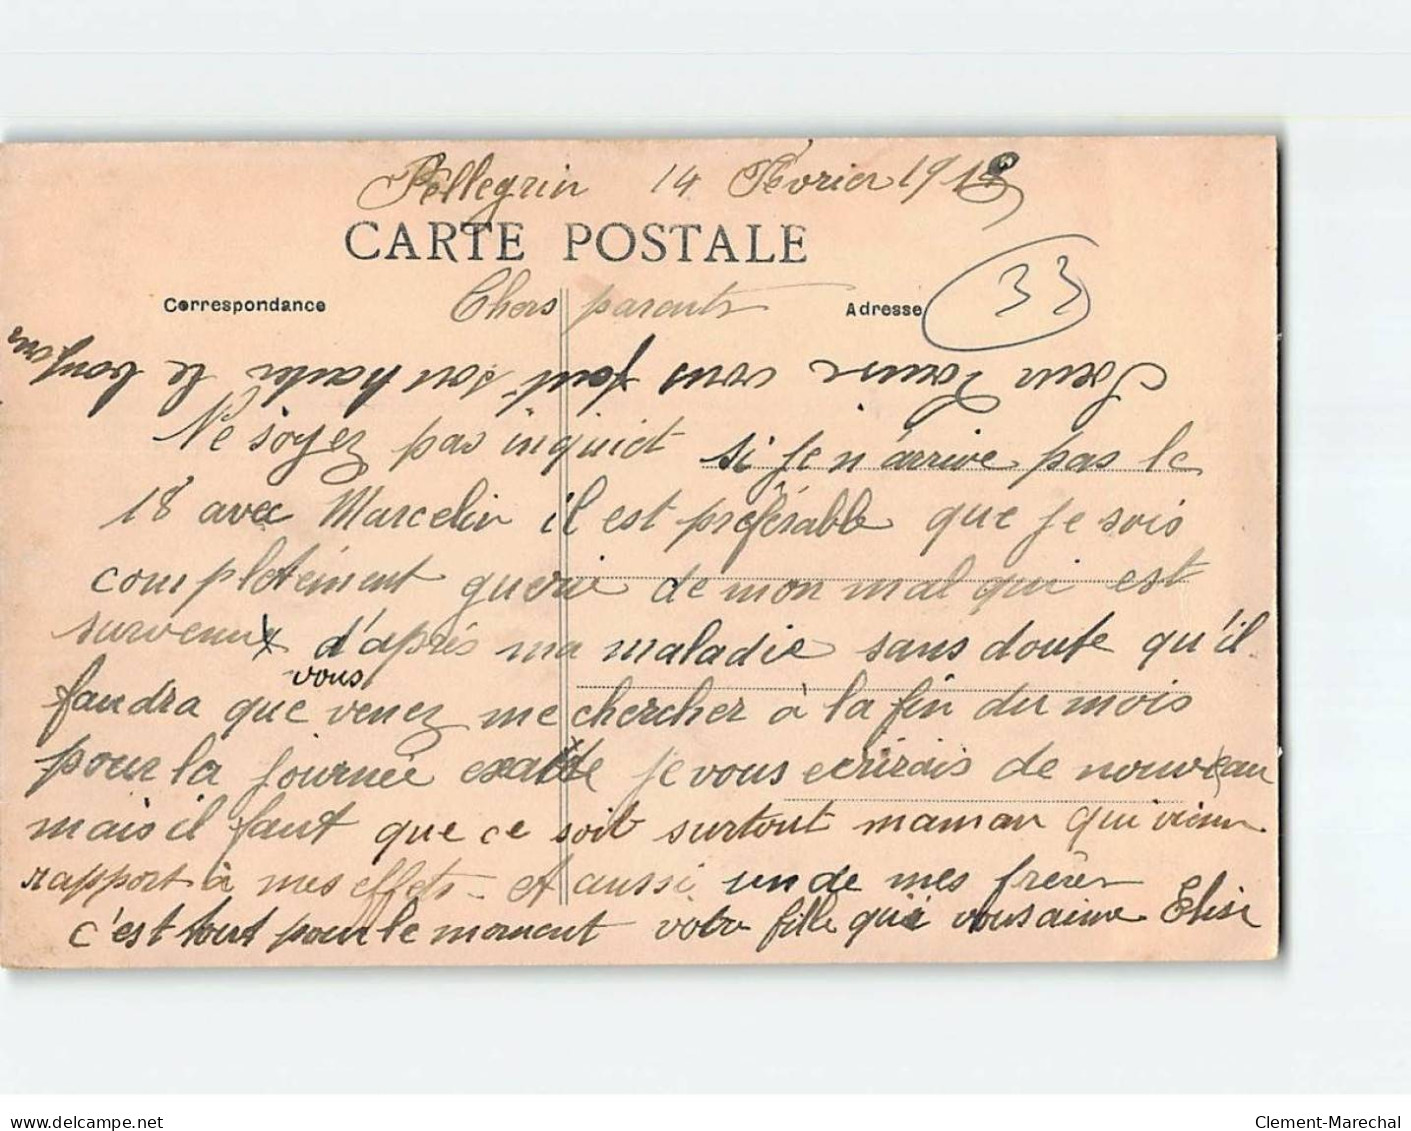 Pellegrin 14 Février 191
CARTE POSTALE
Correspondance
Adresse
33
Chers parents
Soeur Louise vous fait souhaiter le bonjour
Ne soyez pas inquiet si je n'arrive pas le
18 avec Marcelin il est préférable que je sois
complétément guerie de mon mal qui est
survenu d'après ma maladie sans doute qu'il
faudra que vous venez me chercher à la fin du mois
pour la journée exacte je vous ecrirais de nouveau
mais il faut que ce soit surtout maman qui vienn
rapport à mes effets - et aussi un de mes frères
c'est tout pour le moment votre fille qui vous aime Elise
delcampe.net
Clement-Marechal